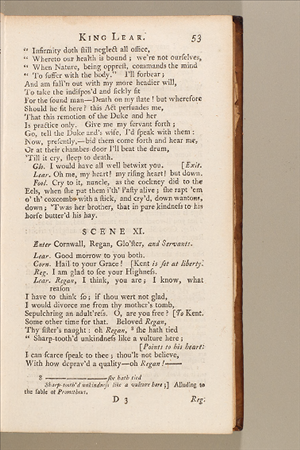 KING LEAR. 53
" Infirmity doth ſtill neglect all office,
" Whereto our health is bound ; we're not ourſelves,
" When Nature, being oppreſt, commands the mind
" To ſuffer with the body." I'll forbear ;
And am fall'n out with my more headier will,
To take the indiſpos'd and ſickly fit
For the ſound man—Death on my ſtate ! but wherefore
Should he ſit here ? this Act perſuades me,
That this remotion of the Duke and her
Is practice only. Give me my ſervant forth ;
Go, tell the Duke and's wife, I'd ſpeak with them :
Now, preſently,—bid them come forth and hear me,
Or at their chamber door I'll beat the drum,
'Till it cry, ſleep to death.
Glo. I would have all well betwixt you. [Exit.
Lear. Oh me, my heart! my riſing heart! but down.
Fool. Cry to it, nuncle, as the cockney did to the
Eels, when ſhe put them i'th' Paſty alive ; ſhe rapt 'em
o' th' coxcombs with a ſtick, and cry'd, down wantons,
down ; 'Twas her brother, that in pure kindneſs to his
horſe butter'd his hay.
SCENE XI.
Enter Cornwall, Regan, Glo'ſter, and Servants.
Lear. Good morrow to you both.
Corn. Hail to your Grace ! [Kent is ſet at liberty.
Reg. I am glad to ſee your Highneſs.
Lear. Regan, I think, you are ; I know, what
reaſon
I have to think ſo ; if thou wert not glad,
I would divorce me from thy mother's tomb,
Sepulchring an adult'reſs. O, are you free ? [To Kent.
Some other time for that. Beloved Regan,
Thy ſiſter's naught : oh Regan, 8 ſhe hath tied
" Sharp-tooth'd unkindneſs like a vulture here ;
[Points to his heart.
I can ſcarce ſpeak to thee ; thou'lt not believe,
With how deprav'd a quality—oh Regan !——
8 ——ſhe hath tied
Sharp-tooth'd unkindneſs like a vulture here ;] Alluding to
the fable of Prometheus.
D 3 Reg.